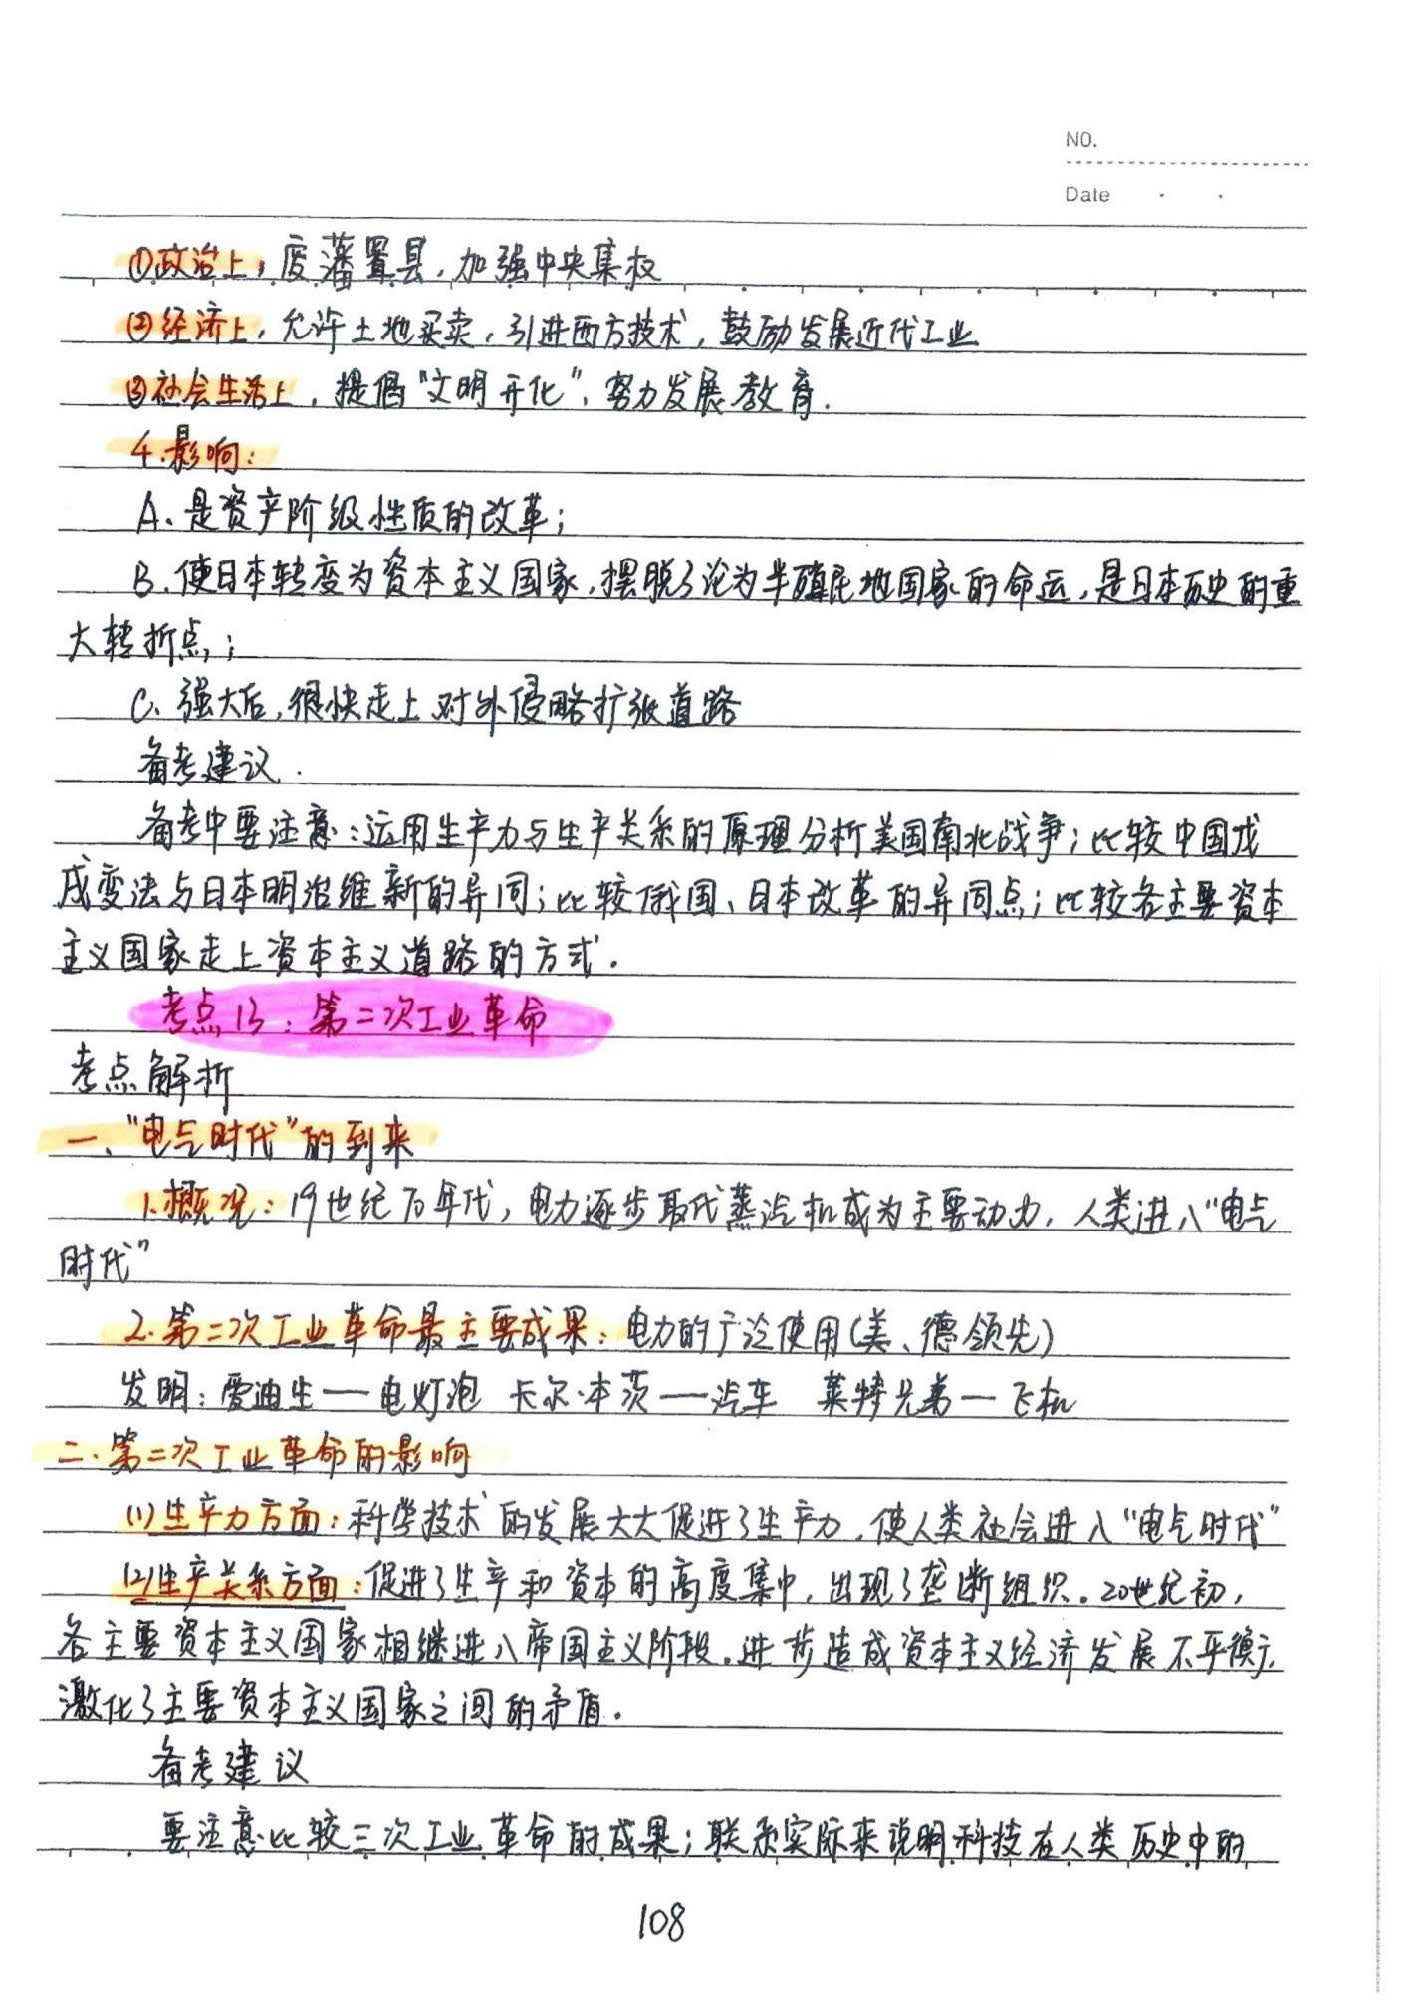 NO.
Date
①政治上，废藩置县，加强中央集权
②经济上，允许土地买卖，引进西方技术，鼓励发展近代工业
③社会生活上，提倡“文明开化”，努力发展教育.
4.影响：
A、是资产阶级性质的改革；
B、使日本转变为资本主义国家，摆脱了沦为半殖民地国家的命运，是日本历史的重
大转折点；
C、强大后，很快走上对外侵略扩张道路
备考建议.
备考中要注意：运用生产力与生产关系的原理分析美国南北战争；比较中国戊
戌变法与日本明治维新的异同；比较俄国、日本改革的异同点；比较各主要资本
主义国家走上资本主义道路的方式.
考点13：第二次工业革命
考点解析
一、“电气时代”的到来
1.概况：19世纪70年代，电力逐步取代蒸汽机成为主要动力，人类进入“电气
时代”
2.第二次工业革命最主要成果：电力的广泛使用(美、德领先)
发明：爱迪生—电灯泡 卡尔·本茨—汽车 莱特兄弟—飞机
二.第二次工业革命的影响
(1)生产力方面：科学技术的发展大大促进了生产力，使人类社会进入“电气时代”
(2)生产关系方面：促进了生产和资本的高度集中，出现了垄断组织。20世纪初，
各主要资本主义国家相继进入帝国主义阶段。进步造成资本主义经济发展不平衡，
激化了主要资本主义国家之间的矛盾。
备考建议
要注意比较三次工业革命的成果；联系实际来说明科技在人类历史中的
108